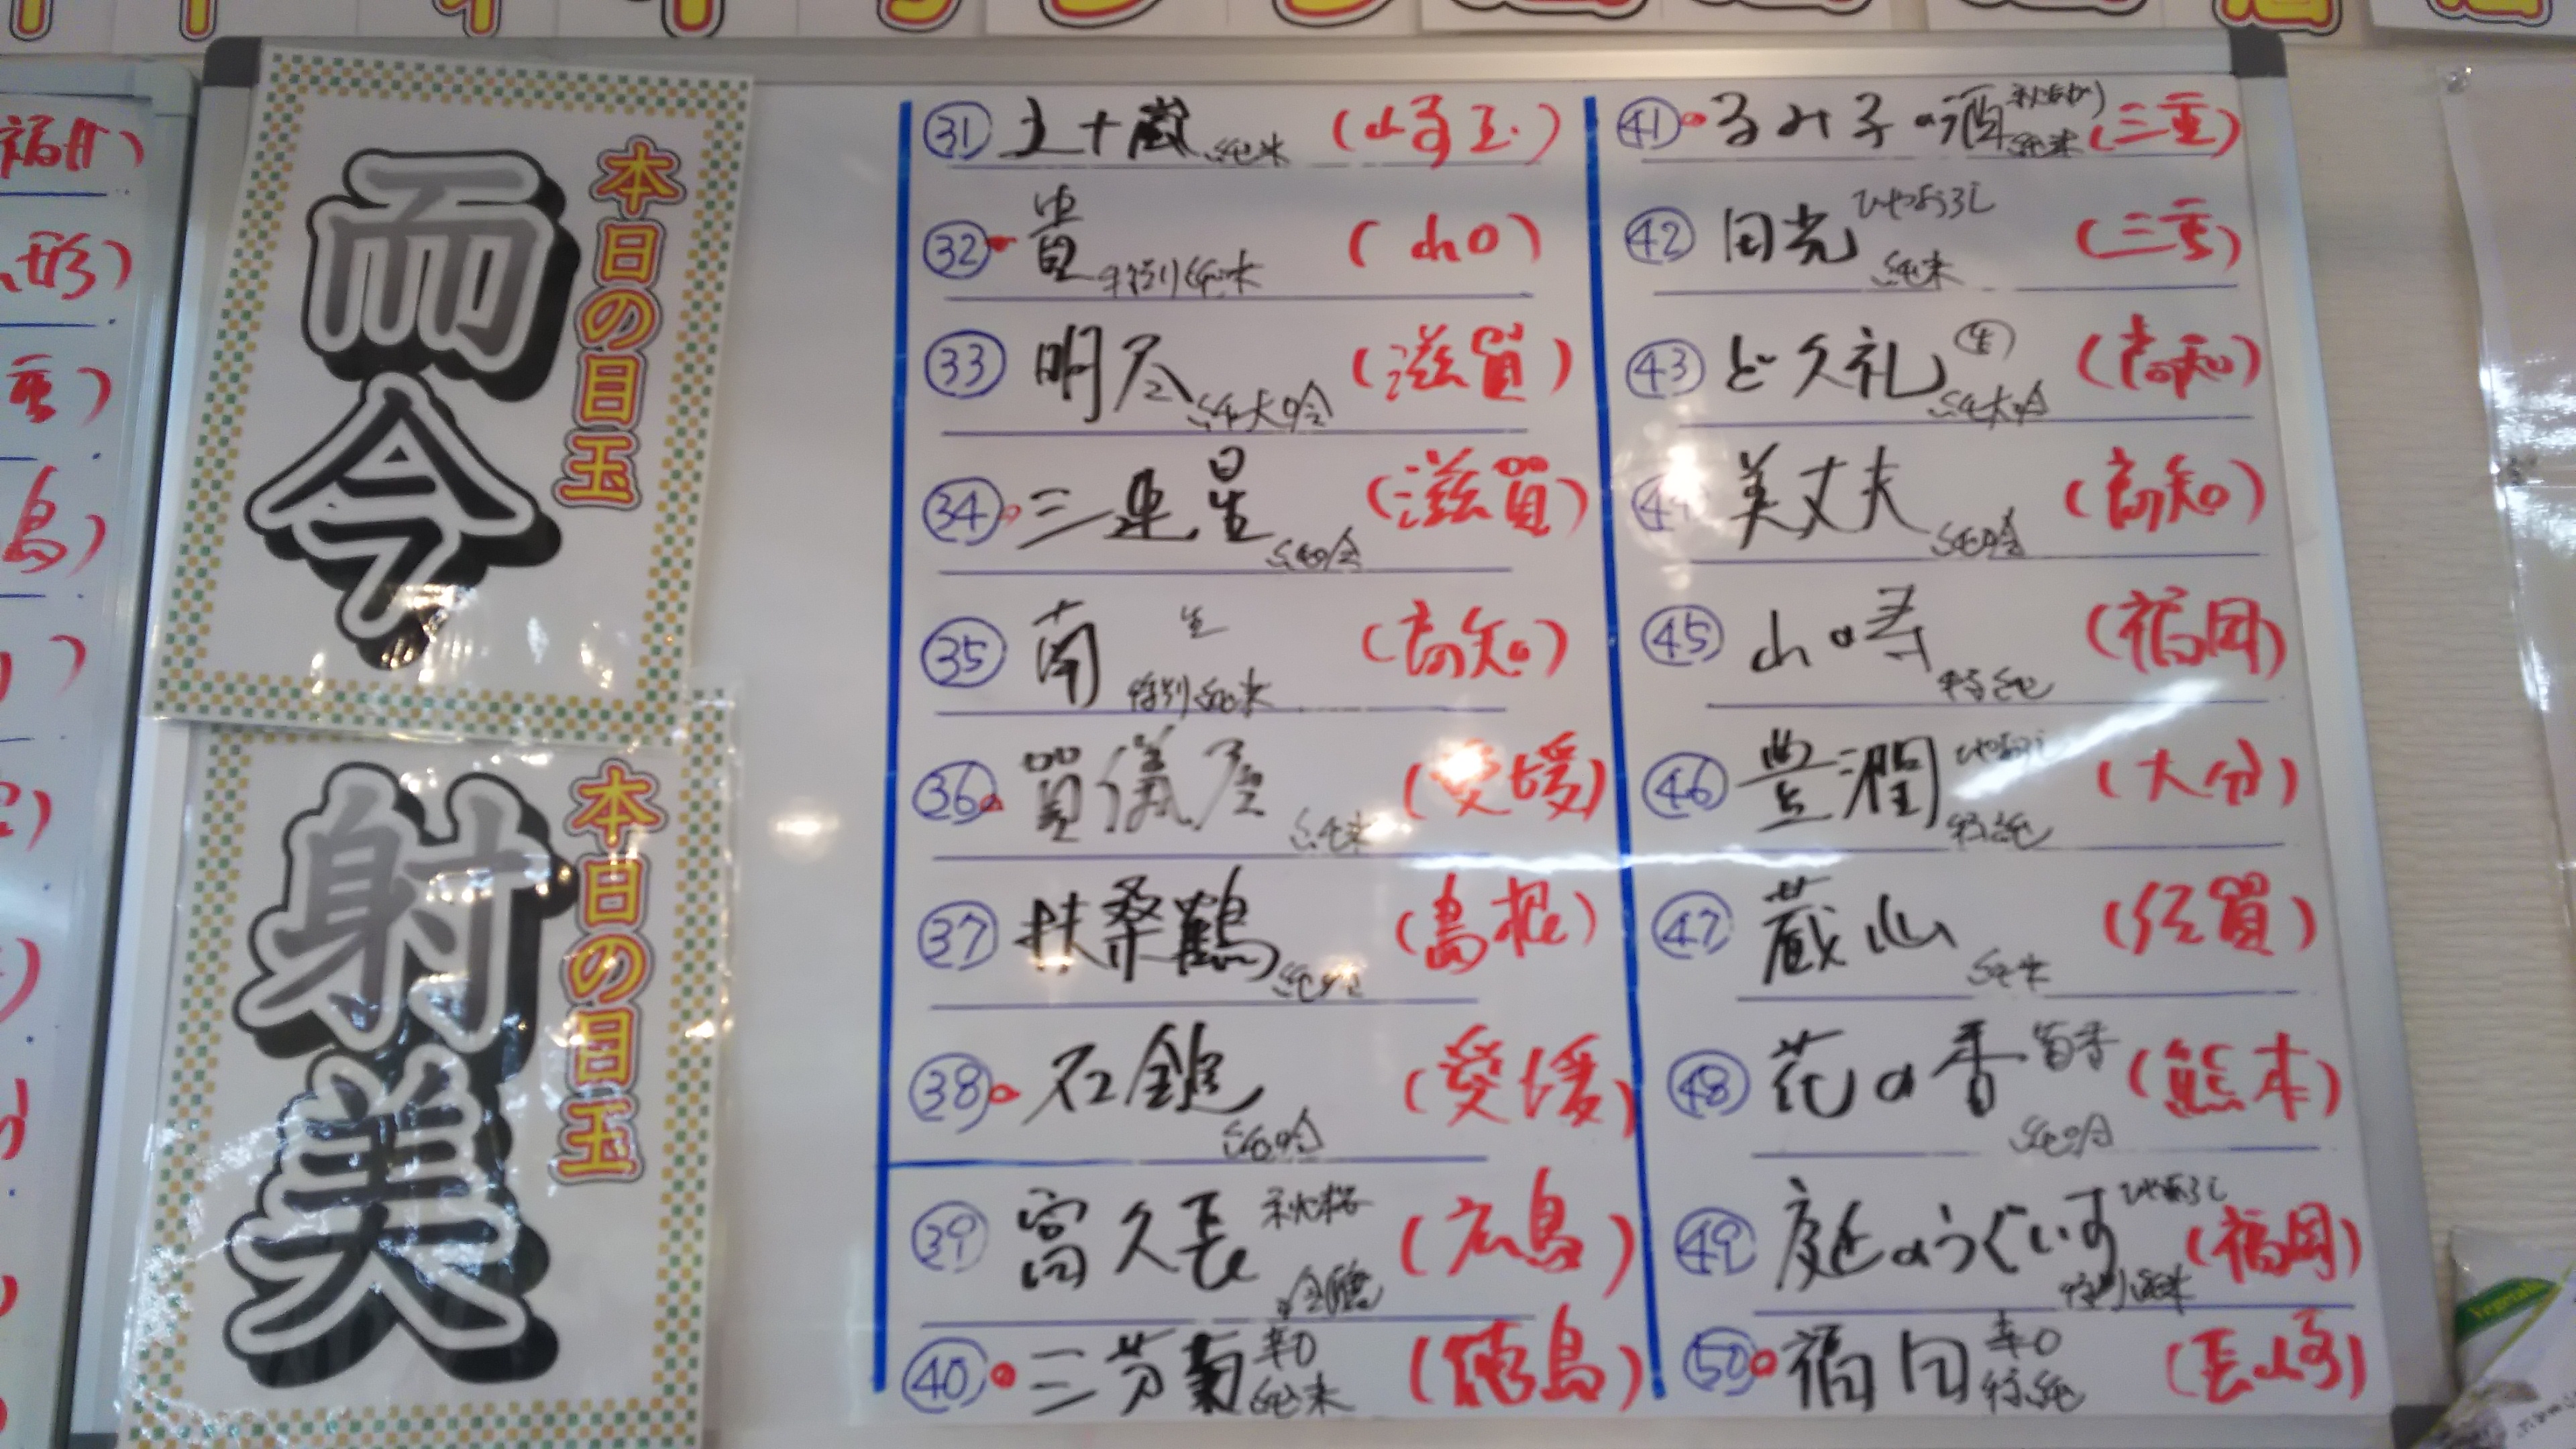 本日の目玉
而今
本日の目玉
射美
㉛ 五十嵐 純米 (埼玉)
㉜ 貴 特別純米 (山口)
㉝ 明尽 純大吟 (滋賀)
㉞ 三連星 純吟 (滋賀)
㉟ 南 生 特別純米 (高知)
㊱ 賀儀屋 純米 (愛媛)
㊲ 扶桑鶴 純吟 (島根)
㊳ 石鎚 純吟 (愛媛)
㊴ 富久長 秋桜 吟醸 (広島)
㊵ 三芳菊 辛口 純米 (徳島)
㊶ るみ子の酒 純米 (三重)
㊷ 田光 ひやおろし 純米 (三重)
㊸ どくれ 生 純大吟 (高知)
㊹ 美丈夫 純吟 (高知)
㊺ 山の寿 特純 (福岡)
㊻ 豊潤 ひやおろし 特純 (大分)
㊼ 蔵心 純米 (佐賀)
㊽ 花の香 菊香 純吟 (熊本)
㊾ 庭のうぐいす ひやおろし 特別純米 (福岡)
㊿ 福田 辛口 特純 (長崎)